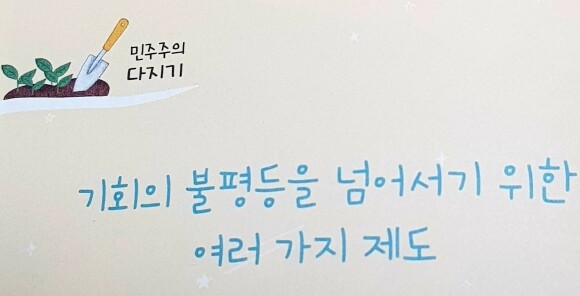 민주주의
다지기
기회의 불평등을 넘어서기 위한
여러 가지 제도